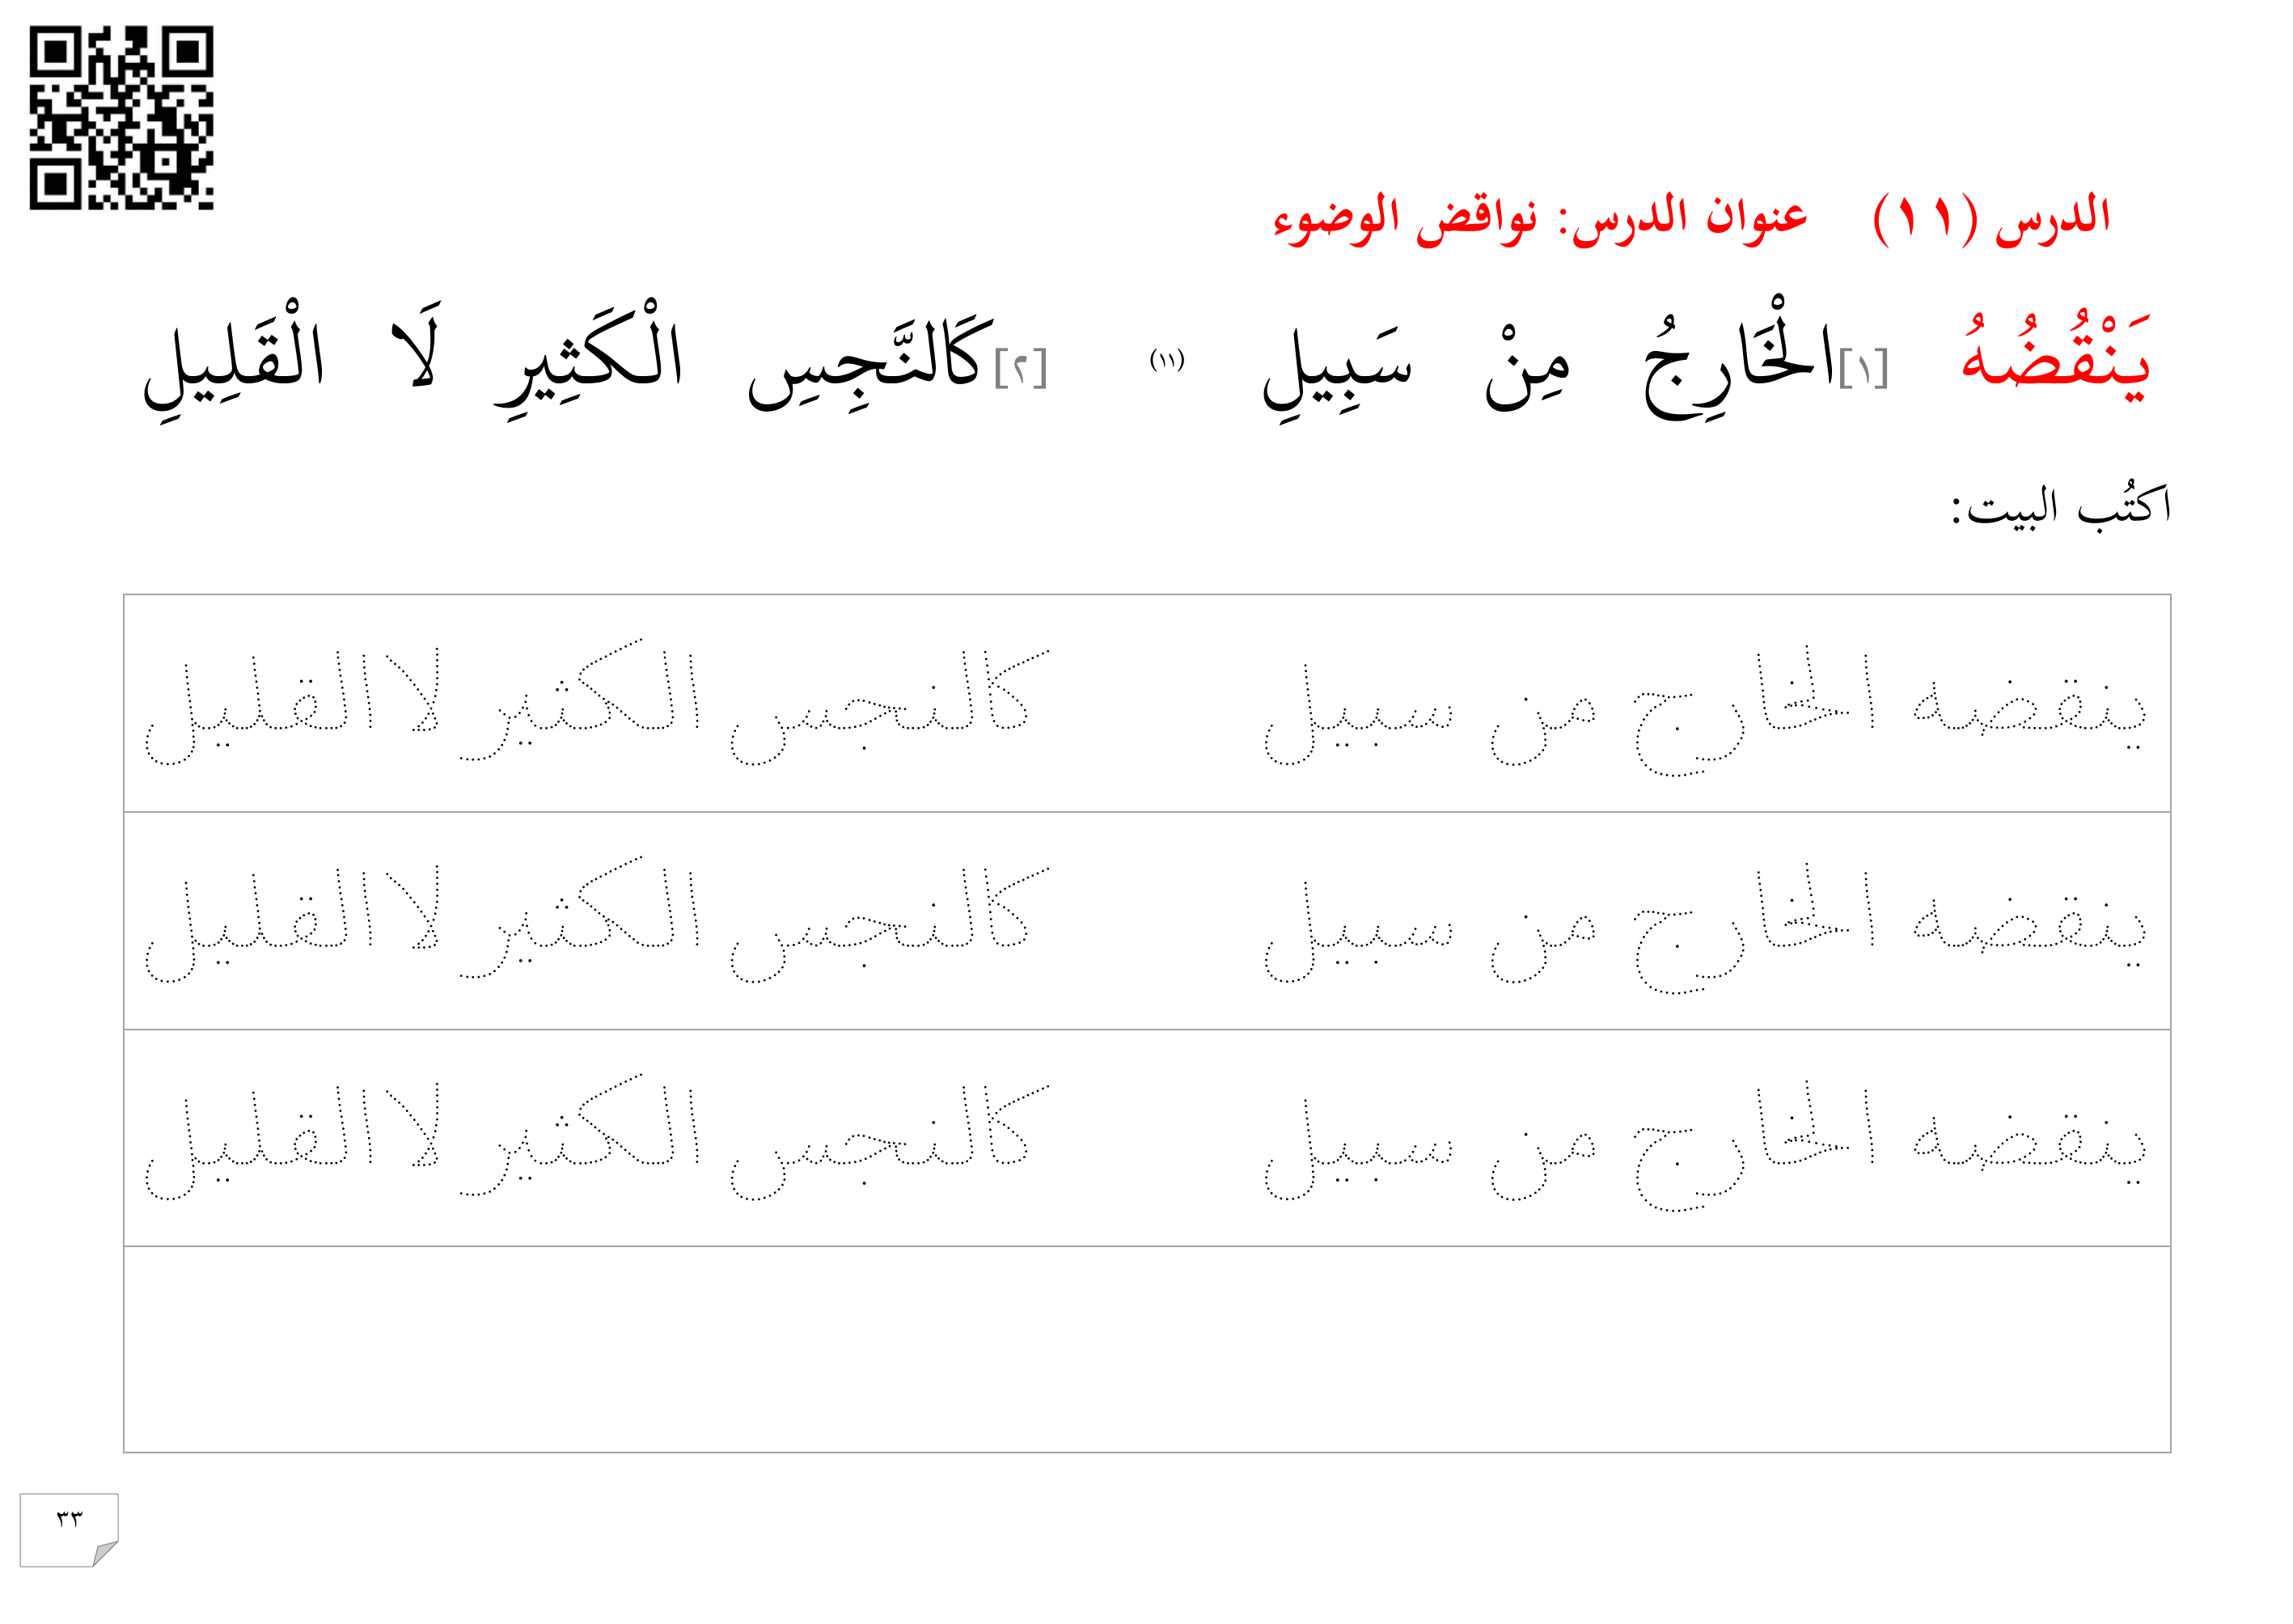 الدرس (١١) عنوان الدرس: نواقض الوضوء
يَنْقُضُهُ [١]الْخَارِجُ مِنْ سَبِيلِ (١١) [٢]كَالنَّجِسِ الْكَثِيرِ لَا الْقَلِيلِ
اكتُب البيت:
ينقضه الخارج من سبيل كالنجس الكثير لا القليل
ينقضه الخارج من سبيل كالنجس الكثير لا القليل
ينقضه الخارج من سبيل كالنجس الكثير لا القليل
٣٣